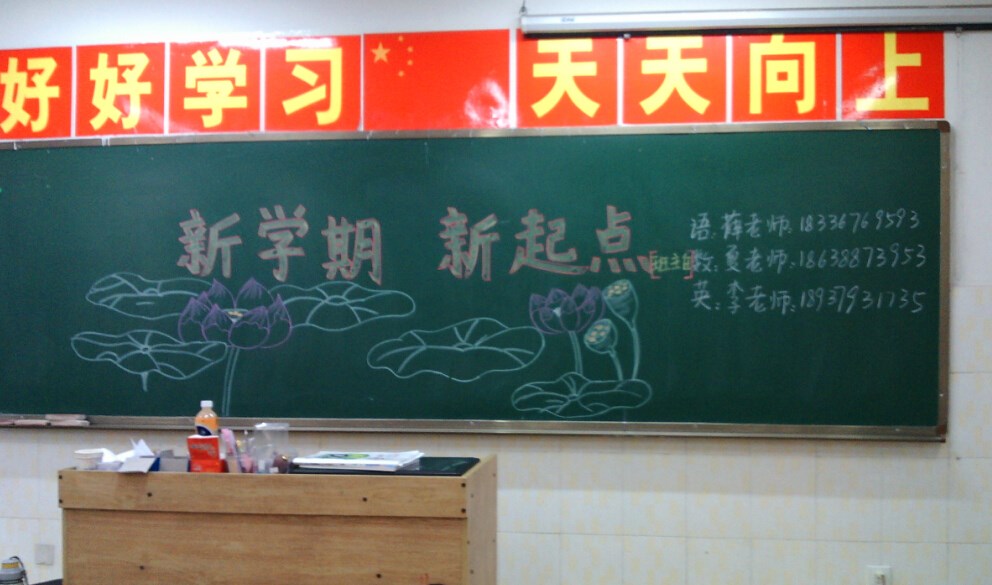 好好学习 天天向上
新学期 新起点
语:薛老师:18336769593
[班主任]数:夏老师:18638873953
英:李老师:18937931735